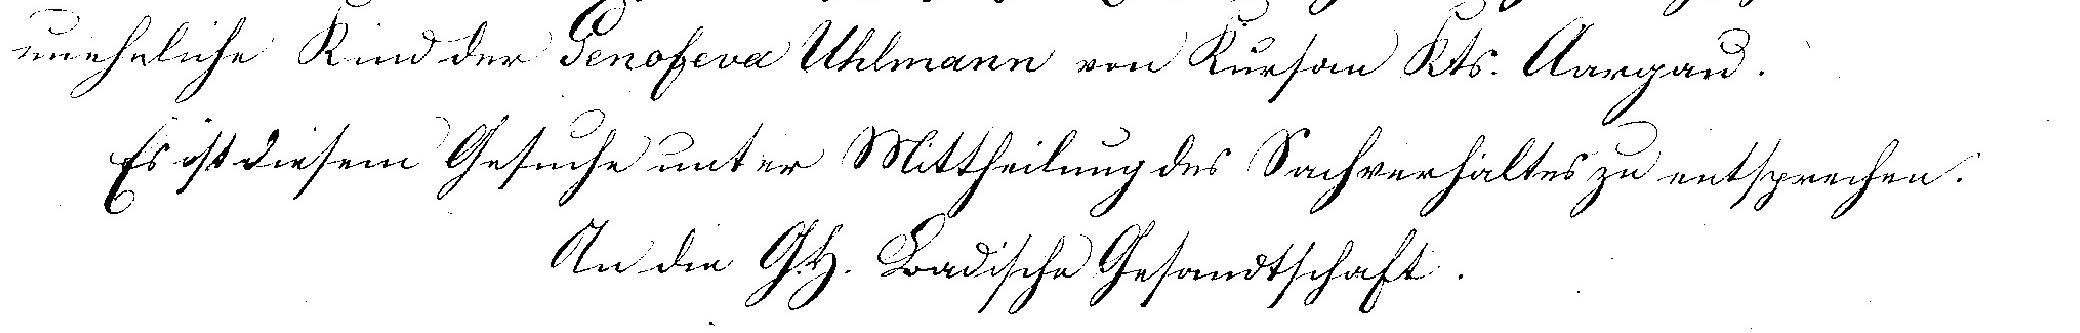 uneheliche Kind der Genofeva Uhlmann von Kts. Aargau.
Es ist diesem Gesuche unter Mittheilung des Sachverhaltes zu entsprechen.
An die G.H. Badische Gesandtschaft.